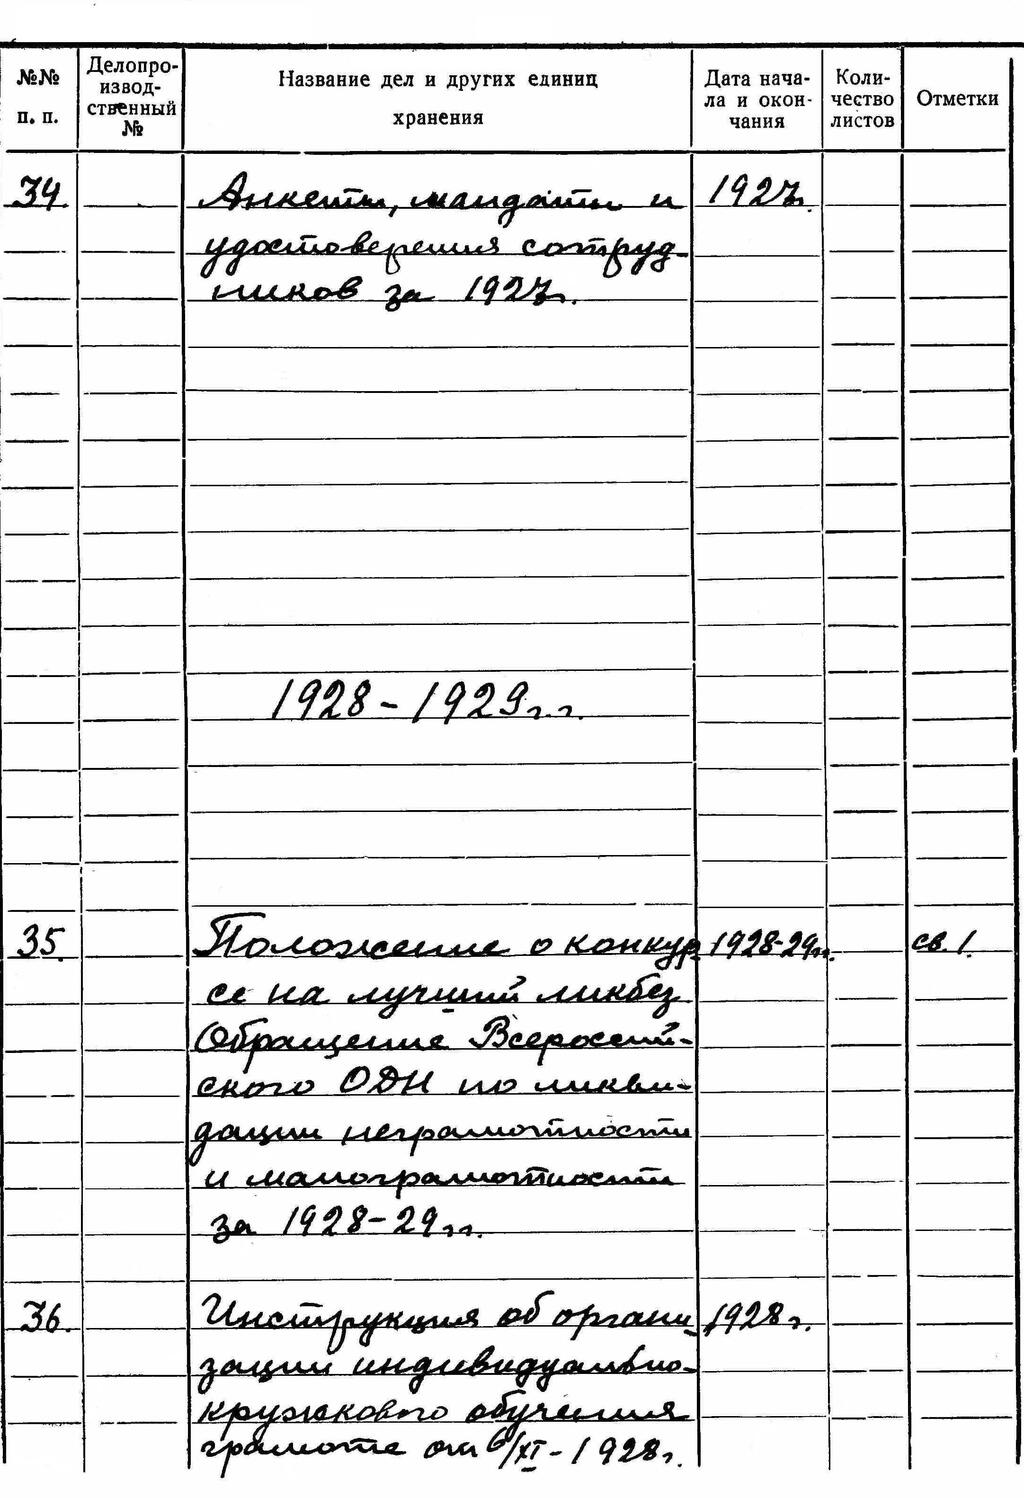 №№ п. п.
Делопро-
извод-
ственный
№
Название дел и других единиц
хранения
Дата нача-
ла и окон-
чания
Коли-
чество
листов
Отметки
34. Анкеты, мандаты и 1927г.
удостоверения сотруд-
ников за 1927г.
1928-1929г.г.
35. Положение о конкур- 1928-29гг. св. 1.
се на лучший ликбез
Обращение Всероссий-
ского ОДН по ликви-
дации неграмотности
и малограмотности
за 1928-29гг.
36. Инструкция об органи- 1928г.
зации индивидуально-
кружкового обучения
грамоте от 6/XI-1928г.